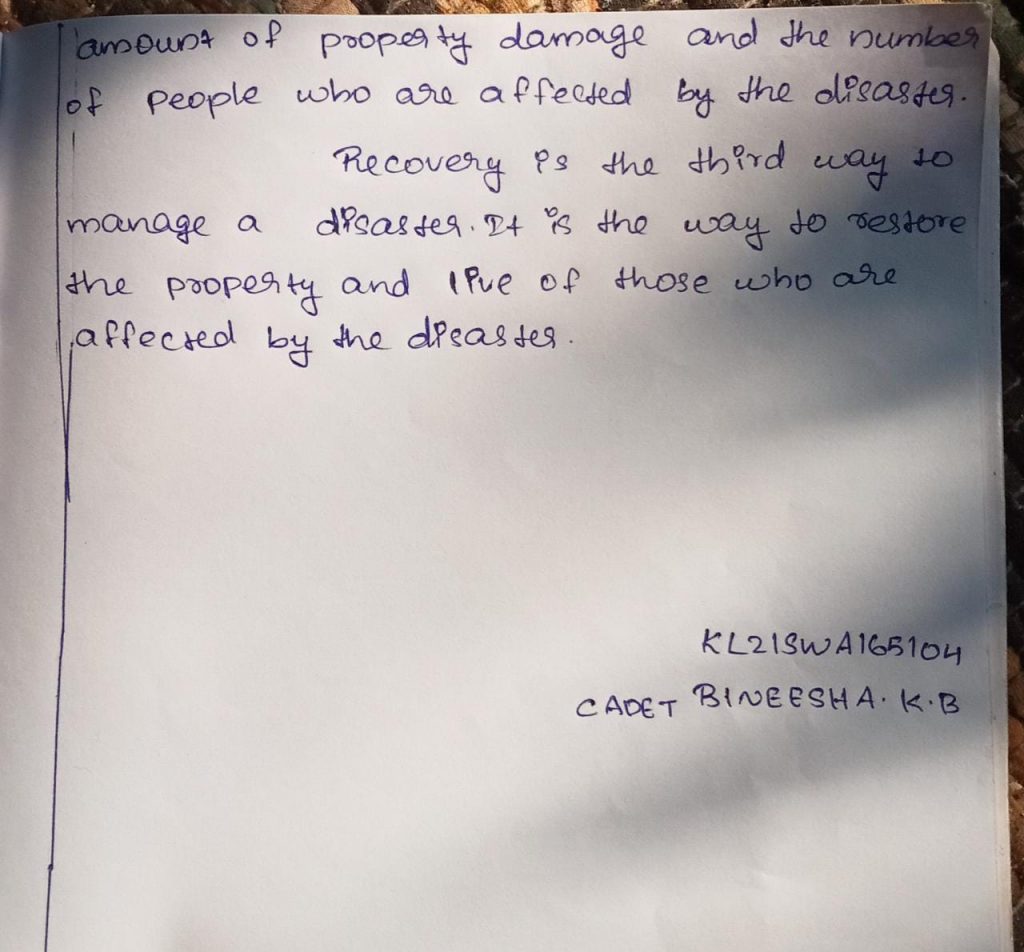 amount of property damage and the number
of people who are affected by the disaster.
Recovery is the third way to
manage a disaster. It is the way to restore
the property and live of those who are
affected by the disaster.
KL21SWA165104
CADET BINEESHA. K.B